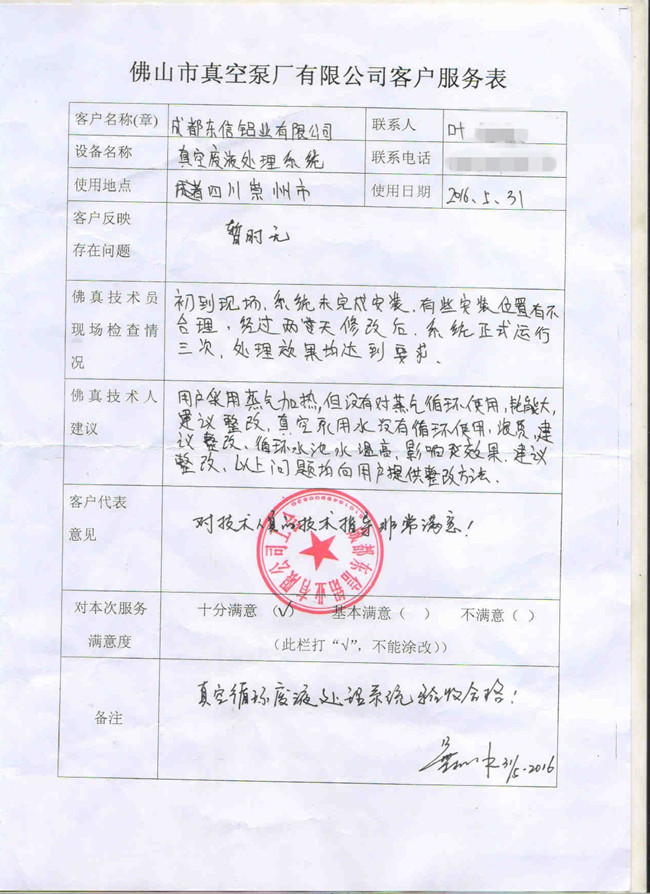 佛山市真空泵厂有限公司客户服务表
客户名称(章) 成都东信铝业有限公司 联系人 叶
设备名称 真空废液处理系统 联系电话
使用地点 四川崇州市 使用日期 2016.5.31
客户反映
存在问题
暂时无
佛真技术员
现场检查情
况
初到现场,系统未完成安装,有些安装位置有不
合理,经过两天修改后,系统正式运行
三次,处理效果均达到要求.
佛真技术人
建议
用户采用蒸气加热,但没有对蒸气循环使用,耗能大,
建议整改,真空泵用水没有循环使用,浪费,建
议整改、循环水池水温高,影响效果.建议
整改,以上问题均向用户提供整改方法.
客户代表
意见
对技术员的技术指导非常满意!
成都东信铝业有限公司
对本次服务
满意度
十分满意 (√) 基本满意 ( ) 不满意 ( )
(此栏打“√”,不能涂改))
备注
真空循环废液处理系统验收合格!
31/5.2016